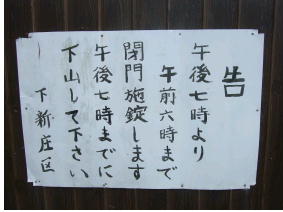 告
午後七時より
午前六時まで
閉門施錠します
午後七時までに
下山して下さい
下新庄区